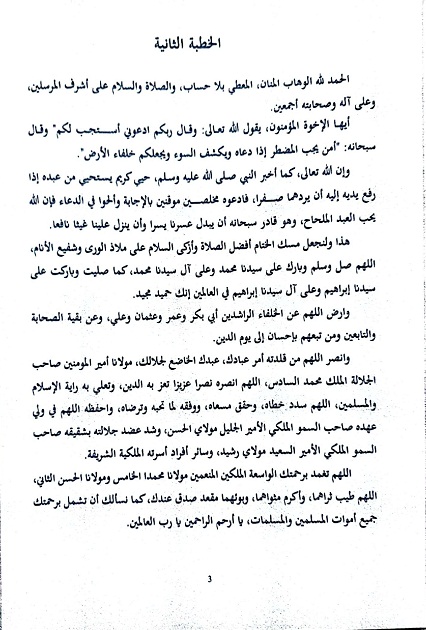 الخطبة الثانية
الحمد لله الوهاب المنان، المعطي بلا حساب، والصلاة والسلام على أشرف المرسلين،
وعلى آله وصحابته أجمعين.
أيها الإخوة المؤمنون، يقول الله تعالى: وقال ربكم ادعوني أستجب لكم" وقال
سبحانه: "أمن يجب المضطر إذا دعاه ويكشف السوء ويجعلكم خلفاء الأرض".
وإن الله تعالى، كما أخبر النبي صلى الله عليه وسلم، حيي كريم يستحيي من عبده إذا
رفع يديه إليه أن يردهما صفرا، فادعوه مخلصين موقنين بالإجابة وألحوا في الدعاء فإن الله
يحب العبد الملحاح، وهو قادر سبحانه أن يبدل عسرنا يسرا وأن ينزل علينا غيثا نافعا.
هذا ولنجعل مسك الختام أفضل الصلاة وأزكى السلام على ملاذ الورى وشفيع الأنام،
اللهم صل وسلم وبارك على سيدنا محمد وعلى آل سيدنا محمد، كما صليت وباركت على
سيدنا إبراهيم وعلى آل سيدنا إبراهيم في العالمين إنك حميد مجيد.
وارض اللهم عن الخلفاء الراشدين أبي بكر وعمر وعثمان وعلي، وعن بقية الصحابة
والتابعين ومن تبعهم بإحسان إلى يوم الدين.
وانصر اللهم من قلدته أمر عبادك، عبدك الخاضع لجلالك، مولانا أمير المومنين صاحب
الجلالة الملك محمد السادس، اللهم انصره نصرا عزيزا تعز به الدين، وتعلي به راية الإسلام
والمسلمين، اللهم سدد خطاه، وحقق مسعاه، ووفقه لما تحبه وترضاه، واحفظه اللهم في ولي
عهده صاحب السمو الملكي الأمير الجليل مولاي الحسن، وشد عضد جلالته بشقيقه صاحب
السمو الملكي الأمير السعيد مولاي رشيد، وسائر أفراد أسرته الملكية الشريفة.
اللهم تغمد برحمتك الواسعة الملكين المنعمين مولانا محمدا الخامس ومولانا الحسن الثاني،
اللهم طيب ثراهما، وأكرم مثواهما، وبوئهما مقعد صدق عندك، كما نسألك أن تشمل برحمتك
جميع أموات المسلمين والمسلمات، يا أرحم الراحمين يا رب العالمين.
3